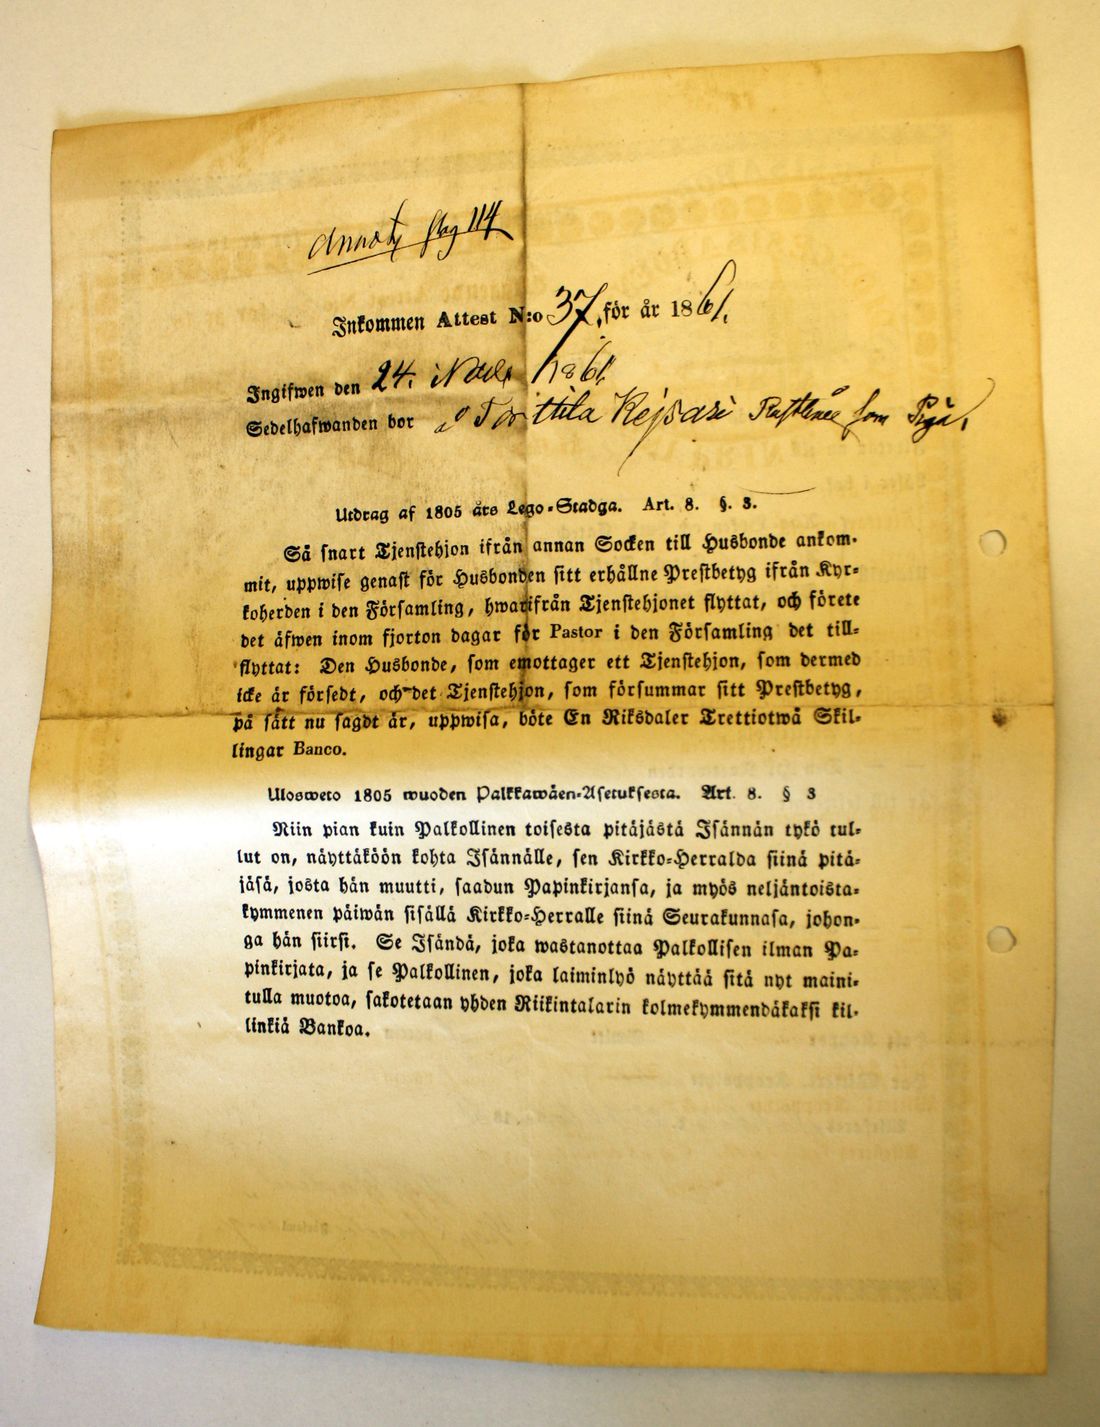 pag 114
Inkommen Attest N:o 37, för år 1861.
Ingifwen den 24. 1861.
Sedelhafwanden bor å Torttila Kejsari som Piga.
Utdrag af 1805 års Lego-Stadga. Art. 8. §. 3.
Så snart Tjenstehjon ifrån annan Socken till Husbonde ankom-
mit, uppwise genast för Husbonden sitt erhållne Prestbetyg ifrån Kyr-
koherden i den Församling, hwarifrån Tjenstehjonet flyttat, och förete
det äfwen inom fjorton dagar för Pastor i den Församling det till-
flyttat: Den Husbonde, som emottager ett Tjenstehjon, som dermed
icke är försedt, och det Tjenstehjon, som försummar sitt Prestbetyg,
på sätt nu sagdt är, uppwisa, böte En Riksdaler Trettiotwå Skil-
lingar Banco.
Ulosweto 1805 wuoden Palkkawäen-Asetuksesta. Art. 8. § 3
Niin pian kuin Palkollinen toisesta pitäjästä Isännän tykö tul-
lut on, näyttäköön kohta Isännälle, sen Kirkko-Herralda siinä pitä-
jäsä, josta hän muutti, saadun Papinkirjansa, ja myös neljäntoista-
kymmenen päiwän sisällä Kirkko-Herralle siinä Seurakunnasa, johon-
ga hän siirsi. Se Isändä, joka wastanottaa Palkollisen ilman Pa-
pinkirjata, ja se Palkollinen, joka laiminlyö näyttää sitä nyt maini-
tulla muotoa, sakotetaan yhden Riikintalarin kolmekymmendäkaksi kil-
linkiä Bankoa.